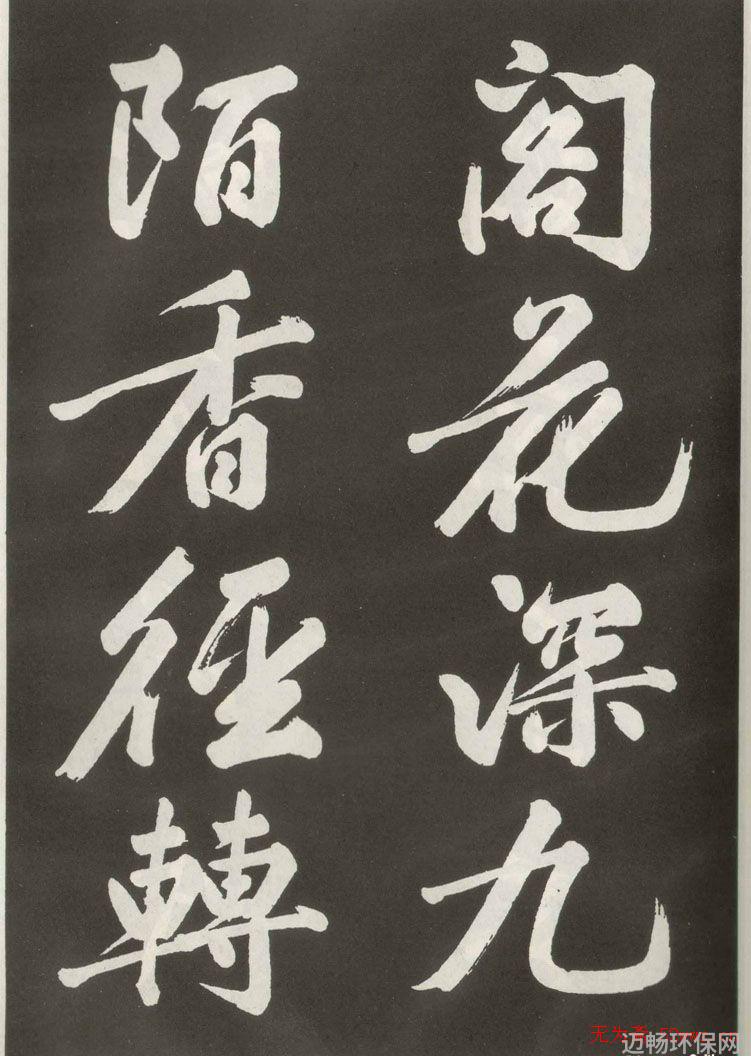 阁花深九
陌香径轉
迈畅环保网